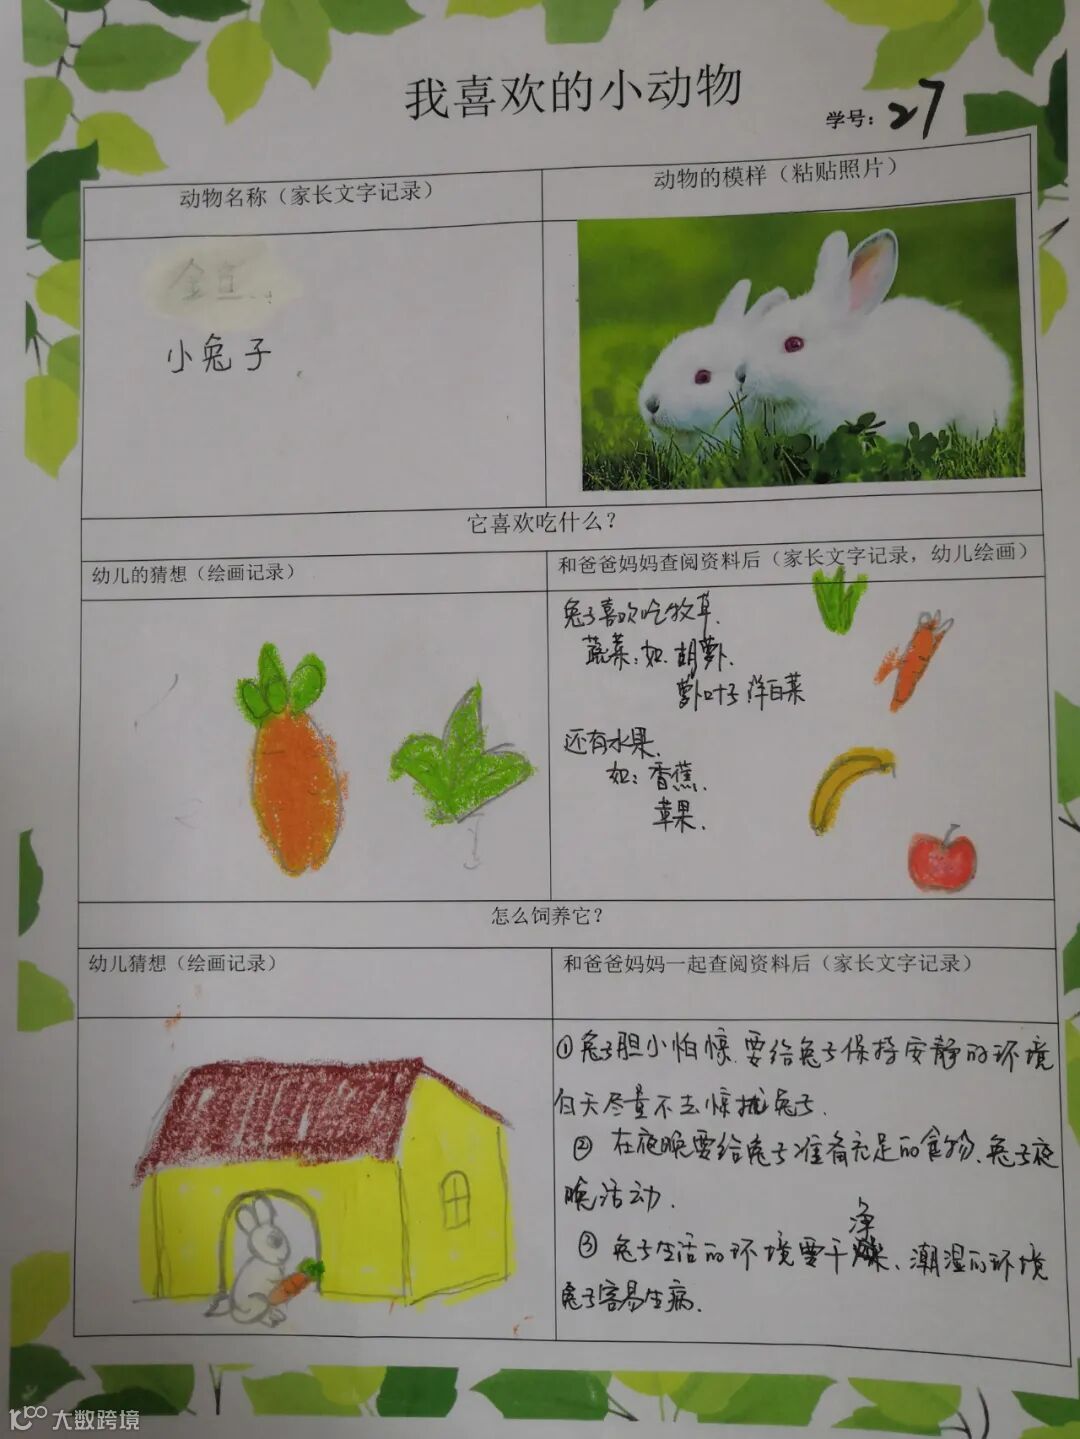 我喜欢的小动物
学号：27
动物名称（家长文字记录）
动物的模样（粘贴照片）
金鱼
小兔子
它喜欢吃什么？
幼儿的猜想（绘画记录）
和爸爸妈妈查阅资料后（家长文字记录，幼儿绘画）
兔子喜欢吃牧草.
蔬菜：如.胡萝卜.
萝卜叶子 洋白菜
还有水果.
如：香蕉.
苹果.
怎么饲养它？
幼儿猜想（绘画记录）
和爸爸妈妈一起查阅资料后（家长文字记录）
①兔子胆小怕惊.要给兔子保持安静的环境
白天尽量不去惊扰兔子.
②在夜晚要给兔子准备充足的食物、兔子夜
晚活动.
净
③兔子生活的环境要干燥、潮湿的环境
兔子容易生病.
大数跨境